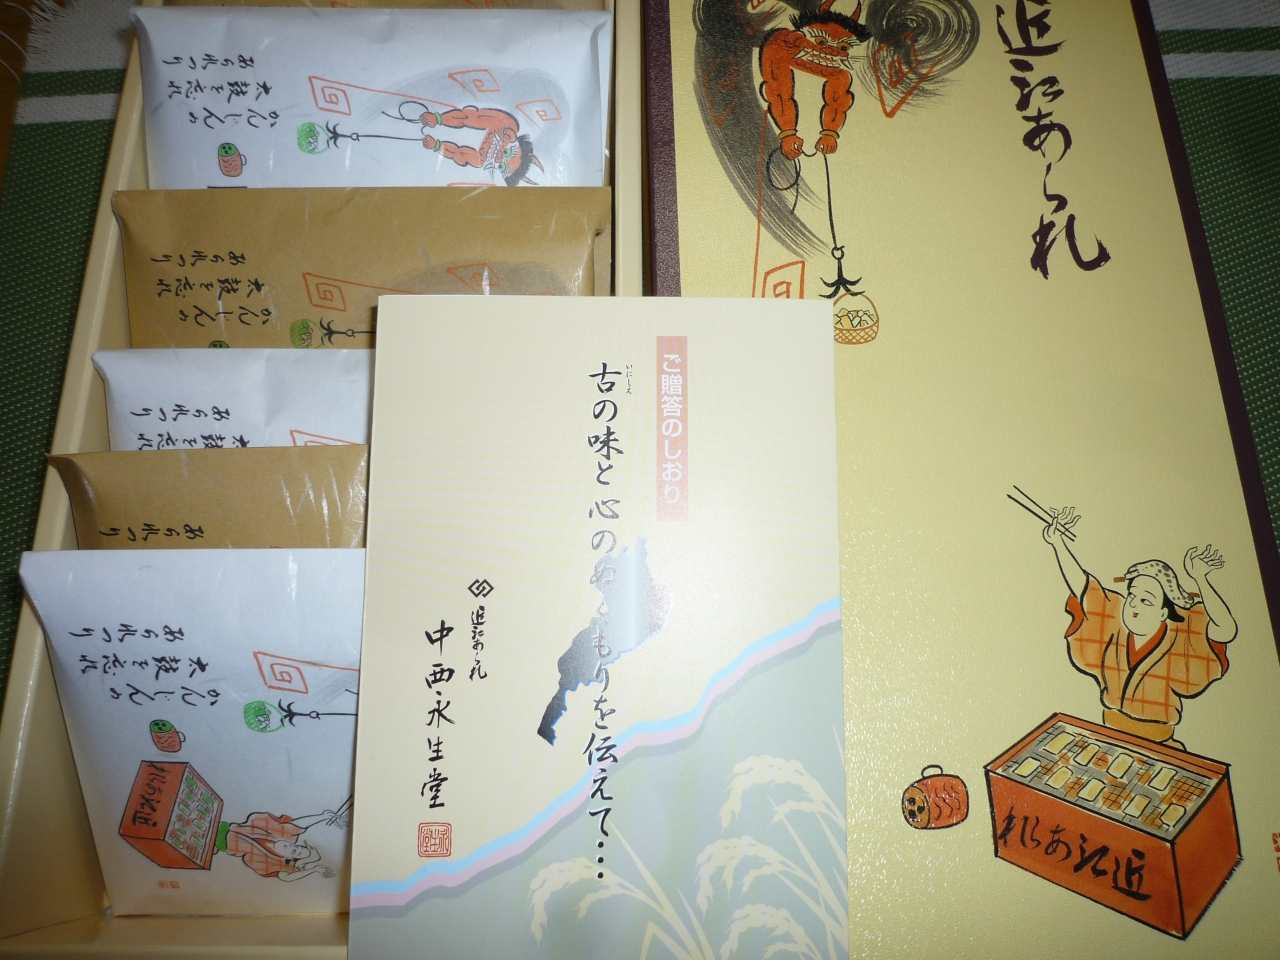 近江あられ
近江あられ
ご贈答のしおり
いにしえ
古の味と心のぬくもりを伝えて・・・
近江あられ
中西永生堂
かんじんの
太鼓を忘れ
あられつり
かんじんの
太鼓を忘れ
あられつり
太鼓を忘れ
あられつり
あられつり
かんじんの
太鼓を忘れ
あられつり
近江あられ